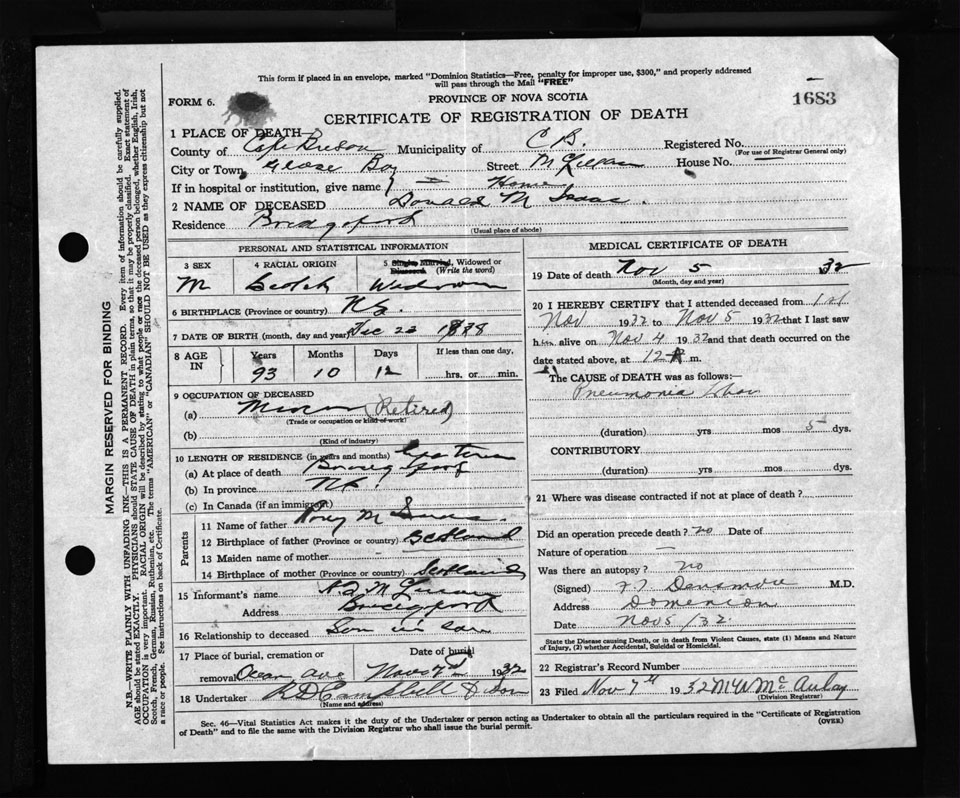 This form if placed in an envelope, marked "Dominion Statistics—Free, penalty for improper use, $300," and properly addressed
will pass through the Mail "FREE"
FORM 6.
PROVINCE OF NOVA SCOTIA
1683
CERTIFICATE OF REGISTRATION OF DEATH
1 PLACE OF DEATH—
County of Cape Breton Municipality of C B. Registered No.
(For use of Registrar General only)
City or Town Glace Bay Street House No. —
If in hospital or institution, give name Home
2 NAME OF DECEASED Donald M Isaac
Residence
(Usual place of abode)
PERSONAL AND STATISTICAL INFORMATION
3 SEX
M
4 RACIAL ORIGIN
Scotch
5 Single Married, Widowed or Divorced (Write the word)
Widower
6 BIRTHPLACE (Province or country) N.S.
7 DATE OF BIRTH (month, day and year) Dec 23
8 AGE IN
Years Months Days If less than one day,
93 10 12 hrs. or min.
9 OCCUPATION OF DECEASED
(a) (Retired)
(Trade or occupation or kind of work)
(b)
(Kind of industry)
10 LENGTH OF RESIDENCE (in years and months)
(a) At place of death
(b) In province N.S.
(c) In Canada (if an immigrant)
Parents
11 Name of father
12 Birthplace of father (Province or country) Scotland
13 Maiden name of mother
14 Birthplace of mother (Province or country) Scotland
15 Informant's name
Address
16 Relationship to deceased Son in law
17 Place of burial, cremation or removal Ocean ave
Date of burial
Nov 7th 1932
18 Undertaker Campbell & Son
(Name and address)
MEDICAL CERTIFICATE OF DEATH
19 Date of death Nov 5 32
(Month, day and year)
20 I HEREBY CERTIFY that I attended deceased from 1st
Nov 1932 to Nov 5 1932 that I last saw
him alive on Nov 4 1932 and that death occurred on the
date stated above, at 12 m.
The CAUSE of DEATH was as follows:—
Pneumonia
(duration) yrs mos 5 dys.
CONTRIBUTORY
(duration) yrs mos dys.
21 Where was disease contracted if not at place of death?
Did an operation precede death? no Date of
Nature of operation —
Was there an autopsy? no
(Signed) Densmore M.D.
Address Dominion
Date Nov 5/32.
State the Disease causing Death, or in death from Violent Causes, state (1) Means and Nature
of Injury, (2) whether Accidental, Suicidal or Homicidal.
22 Registrar's Record Number
23 Filed Nov 7th 1932 McAulay
(Division Registrar)
Sec. 46—Vital Statistics Act makes it the duty of the Undertaker or person acting as Undertaker to obtain all the particulars required in the "Certificate of Registration
of Death" and to file the same with the Division Registrar who shall issue the burial permit.
(OVER)
MARGIN RESERVED FOR BINDING
N.B—WRITE PLAINLY WITH UNFADING INK—THIS IS A PERMANENT RECORD. Every item of information should be carefully supplied.
AGE should be stated EXACTLY. PHYSICIANS should STATE CAUSE OF DEATH in plain terms, so that it may be properly classified. Exact statement of
OCCUPATION is very important. RACIAL ORIGIN will be described by stating to what people or race the deceased person belonged, whether English, Irish,
Scotch, French, German, Russian, Ruthenian, etc. The terms "AMERICAN" or "CANADIAN" SHOULD NOT BE USED as they express citizenship but not
a race or people. See instructions on back of Certificate.